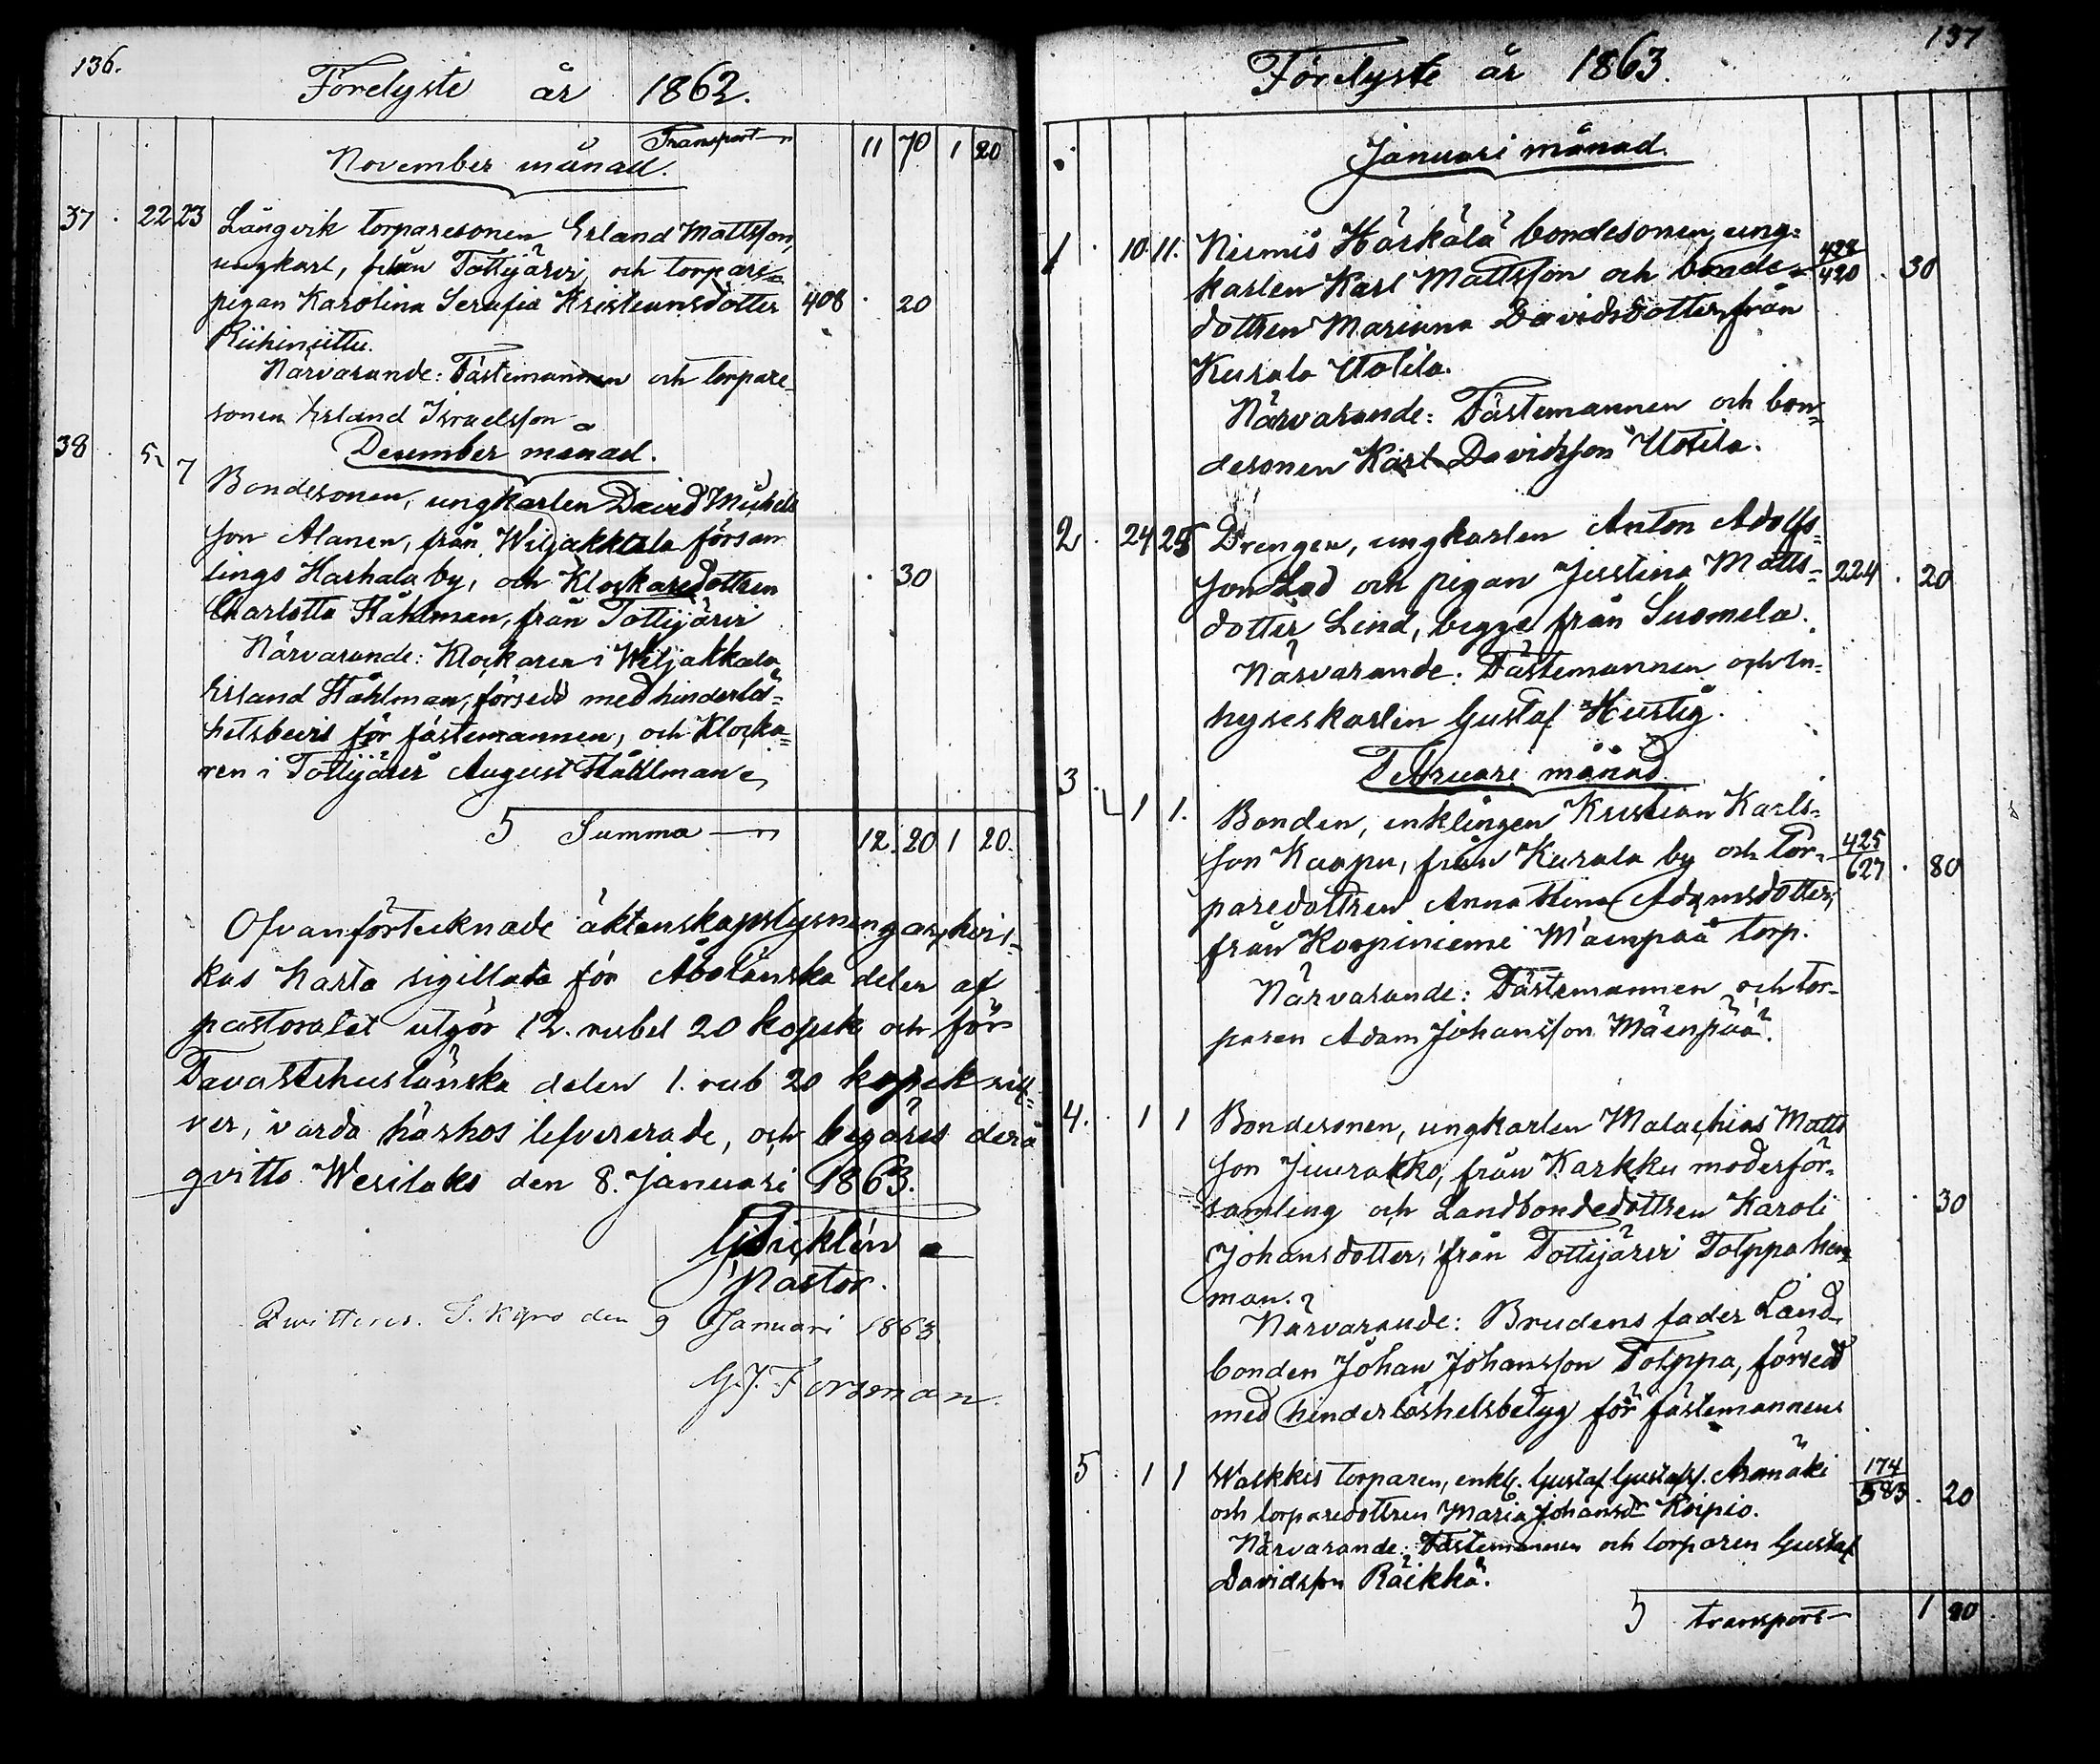 136.
Förelyste år 1862.
Transport 11 70 1 20
November månad.
37 . 22 23 Långvik torparesonen Erland Mattsson,
ungkarl, från Tottijärvi, och torpare-
pigan Karolina Serafia Kristiansdotter 408 . 20
Riihiniittu.
Närvarande: Fästemannen och torpare-
sonen Erland Israelsson
38 . 5 7 December månad.
Bondesonen, ungkarlen David Michels
son Alanen, från Wiljakkala försam
lings Harhala by, och Klockaredottren . 30
Charlotta Ståhlman, från Tottijärvi
Närvarande: Klockaren i Wiljakkala
Erland Ståhlman, försedd med hinderlös-
hetsbevis för fästemannen, och Klocka-
ren i Tottijärvi August Ståhlman
5 Summa 12. 20 1 20.
Ofvanförtecknade äktenskapslysningar, hvil-
kas Karta sigillata för Åbolänska delen af
pastoratet utgör 12. rubel 20 kopek och för
Tavastehuslänska delen 1. rub 20 kopek silf-
ver, varda härhos lefvererade, och begäres derå
qvitto. Wesilaks den 8. Januari 1863.
Pastor.
Qvitteras. T. Kyro den 9 Januari 1863.
G. J. Forsman
137
Förelyste år 1863.
Januari månad.
1 . 10 11. Niemis Härkälä bondesonen, ung-
karlen Karl Mattsson och bonde- 420 . 30
dottren Mariana Davidsdotter, från
Kurala Uotila.
Närvarande: Fästemannen och bon-
desonen Karl Davidsson Uotila.
2 . 24 25 Drengen, ungkarlen Anton Adolfs-
son Lod och pigan Justina Matts- 224 . 20
dotter Lind, begge från Suomela.
Närvarande: Fästemannen och in-
hyseskarlen Gustaf Hurtig.
3 . Februari månad.
1 1. Bonden, enklingen Kristian Karls-
son Kaapu, från Kurala by och tor- 425/627 . 80
paredottren Anna Stina Adamsdotter,
från Korpiniemi Mäenpää torp.
Närvarande: Fästemannen och tor-
paren Adam Johansson Mäenpää.
4. 1 1 Bondesonen, ungkarlen Malachias Matts
son Juurakko, från Karkku moderför-
samling och Landbondedottren Karoli . 30
Johansdotter, från Tottijärvi Tolppa hem-
man.
Närvarande: Brudens fader Land-
bonden Johan Johansson Tolppa, försedd
med hinderlöshetsbetyg för fästemannen
5 . 1 1 Walkkis torparen, enkl. Gustaf Gustafss. Aromäki 174/583 . 20
och torparedottren Maria Johansdr Koipio.
Närvarande: Fästemannen och torparen Gustaf
Davidsson Räikkä.
5 transport 1 80